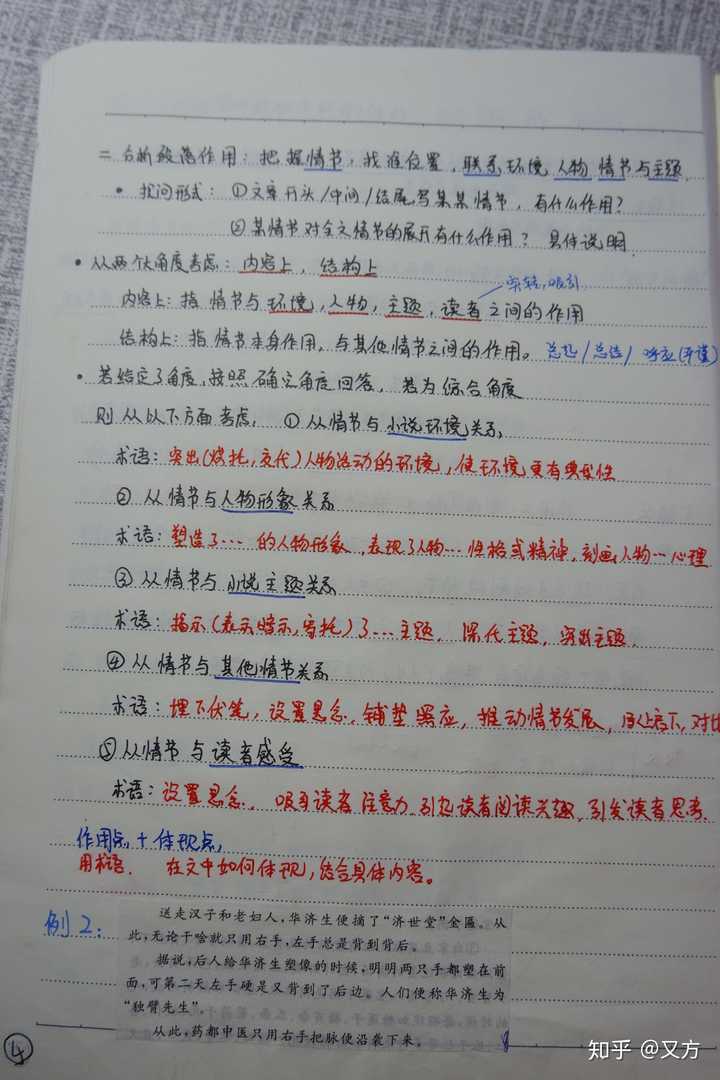 二 分析段落作用：把握情节，找准位置，联系环境 人物 情节与主题.
• 提问形式：①文章开头/中间/结尾写某某情节，有什么作用？
②某情节对全文情节的展开有什么作用？ 具体说明.
• 从两个大角度考虑：内容上，结构上
吸引
内容上：指 情节与环境，人物，主题，读者 之间的作用
结构上：指 情节本身作用，与其他情节之间的作用。 总起/总结/ 呼应(严谨)
• 若给定了角度，按照 确定角度回答，若为综合角度
则 从以下方面考虑， ① 从情节与小说环境关系，
术语：突出(烘托，交代)人物活动的环境，使环境更有典型性
② 从情节与人物形象关系
术语：塑造了… 的人物形象，表现了人物… 性格或精神，刻画人物…心理
③ 从情节与小说主题关系
术语：揭示(表示暗示，寄托)了…主题， 深化主题，突出主题.
④ 从情节与其他情节关系
术语：埋下伏笔，设置悬念，铺垫照应，推动情节发展，承上启下，对比
⑤从情节与读者感受
术语：设置悬念， 吸引读者注意力，引起读者阅读兴趣，引发读者思考.
作用点 + 体现点，
用术语. 在文中如何体现，结合具体内容。
例2：
送走汉子和老妇人，华济生便摘了“济世堂”金匾。从
此，无论干啥就只用右手，左手总是背到背后。
据说，后人给华济生塑像的时候，明明两只手都塑在前
面，可第二天左手硬是又背到了后边。人们便称华济生为
“独臂先生”。
从此，药都中医只用右手把脉便沿袭下来。
4
知乎 @又方